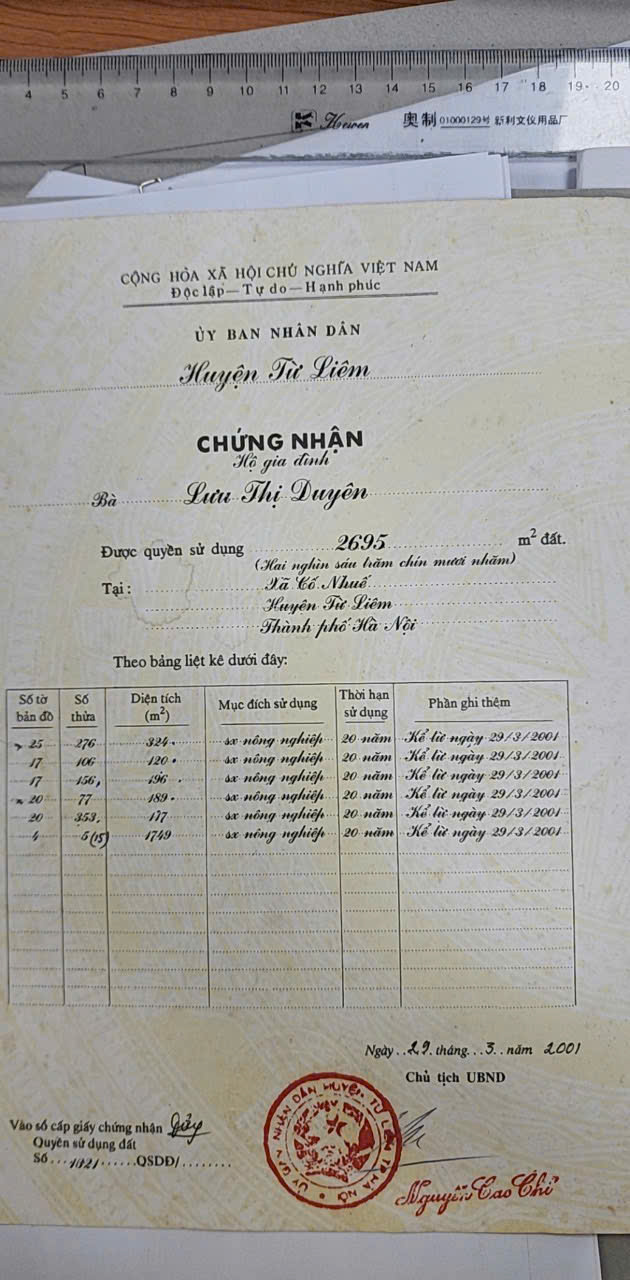 4 5 6 7 8 9 10 11 12 13 14 15 16 17 18 19 20
Keiven 奥制 01000129号 新利文仪用品厂
CỘNG HÒA XÃ HỘI CHỦ NGHĨA VIỆT NAM
Độc lập — Tự do — Hạnh phúc
ỦY BAN NHÂN DÂN
Huyện Từ Liêm
CHỨNG NHẬN
Hộ gia đình
Bà Lưu Thị Duyên
Được quyền sử dụng 2695 m² đất.
(Hai nghìn sáu trăm chín mươi nhăm)
Tại : Xã Cổ Nhuế
Huyện Từ Liêm
Thành phố Hà Nội
Theo bảng liệt kê dưới đây:
Số tờ bản đồ Số thửa Diện tích (m²) Mục đích sử dụng Thời hạn sử dụng Phần ghi thêm
25 276 324 sx nông nghiệp 20 năm Kể từ ngày 29/3/2001
17 106 120 sx nông nghiệp 20 năm Kể từ ngày 29/3/2001
17 156 196 sx nông nghiệp 20 năm Kể từ ngày 29/3/2001
20 77 189 sx nông nghiệp 20 năm Kể từ ngày 29/3/2001
20 353 117 sx nông nghiệp 20 năm Kể từ ngày 29/3/2001
4 5(15) 1749 sx nông nghiệp 20 năm Kể từ ngày 29/3/2001
Ngày 29 tháng 3 năm 2001
Chủ tịch UBND
Vào sổ cấp giấy chứng nhận
Quyền sử dụng đất
Số 1021 QSDĐ/
ỦY BAN NHÂN DÂN HUYỆN TỪ LIÊM TP HÀ NỘI
Nguyễn Cao Chí